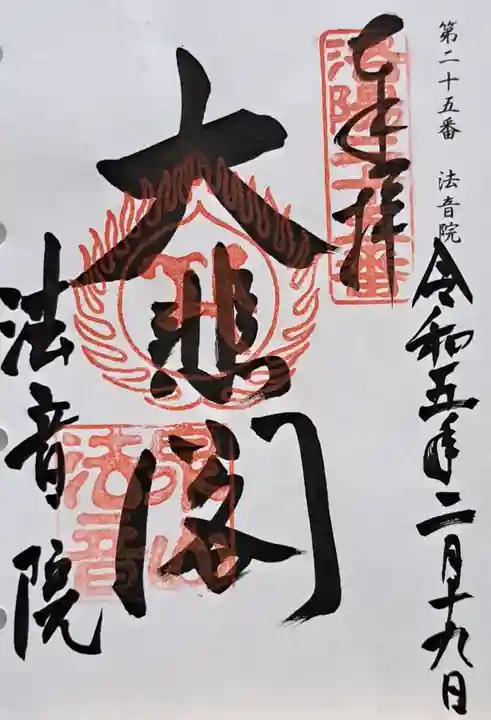 第二十五番 法音院
令和五年二月十九日
奉拝
洛陽二十五番
大悲閣
泉山
法音
法音院